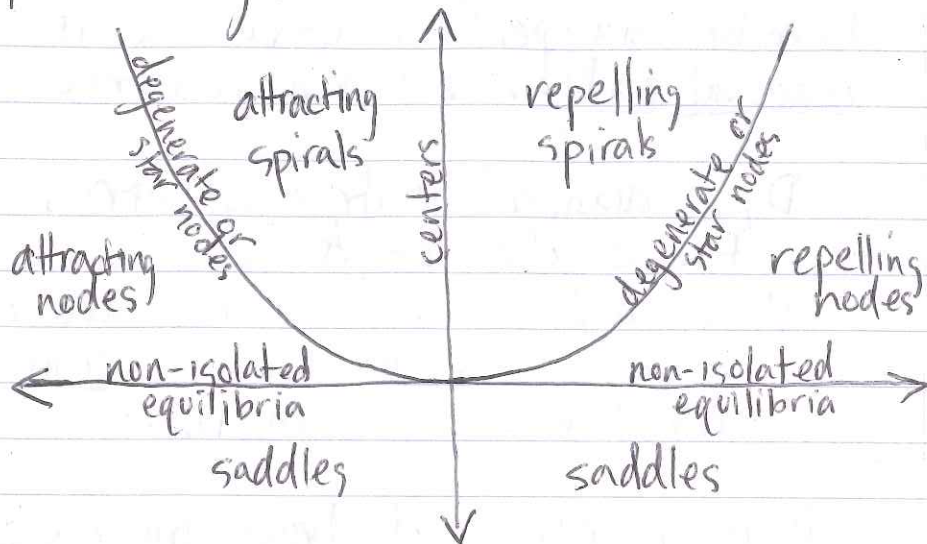 degenerate or
star nodes
attracting
spirals
centers
repelling
spirals
degenerate or
star nodes
attracting
nodes
repelling
nodes
non-isolated
equilibria
non-isolated
equilibria
saddles
saddles